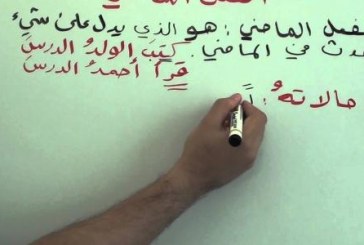 الفعل الماضي
لفعل الماضي : هو الذي يدل على شيء
دث في الماضي . كتبَ الولدُ الدرسَ
قرأ أحمدُ الدرسَ
حالاتهُ :